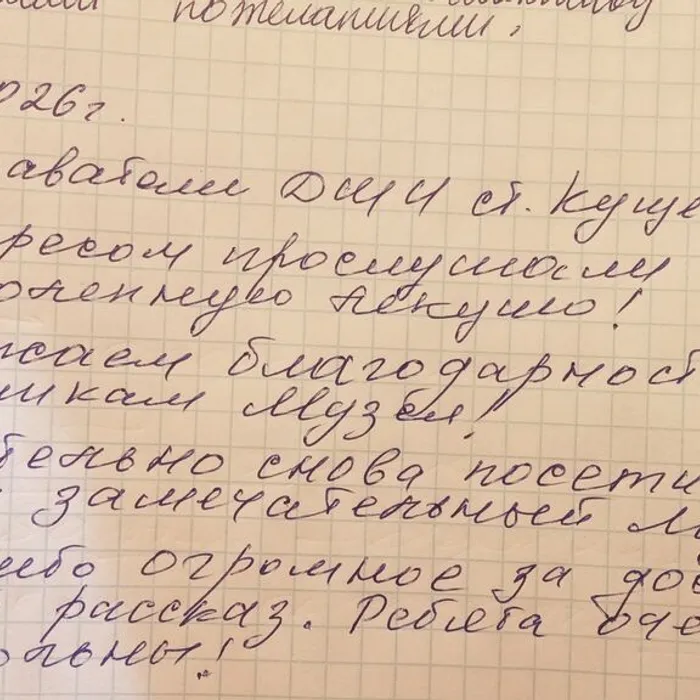 пожеланиями.
026г.
аватели ДШИ ст. Куще
ресом прослушали
оненную лекцию!
жаем благодарност
никам Музея!
тельно снова посети
замечательный М
ибо огромное за доб
рассказ. Ребята оче
ольны!